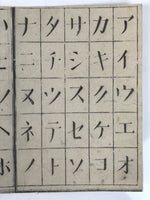 アイウエオ
カキクケコ
サシスセソ
タチツテト
ナニヌネノ
ホ